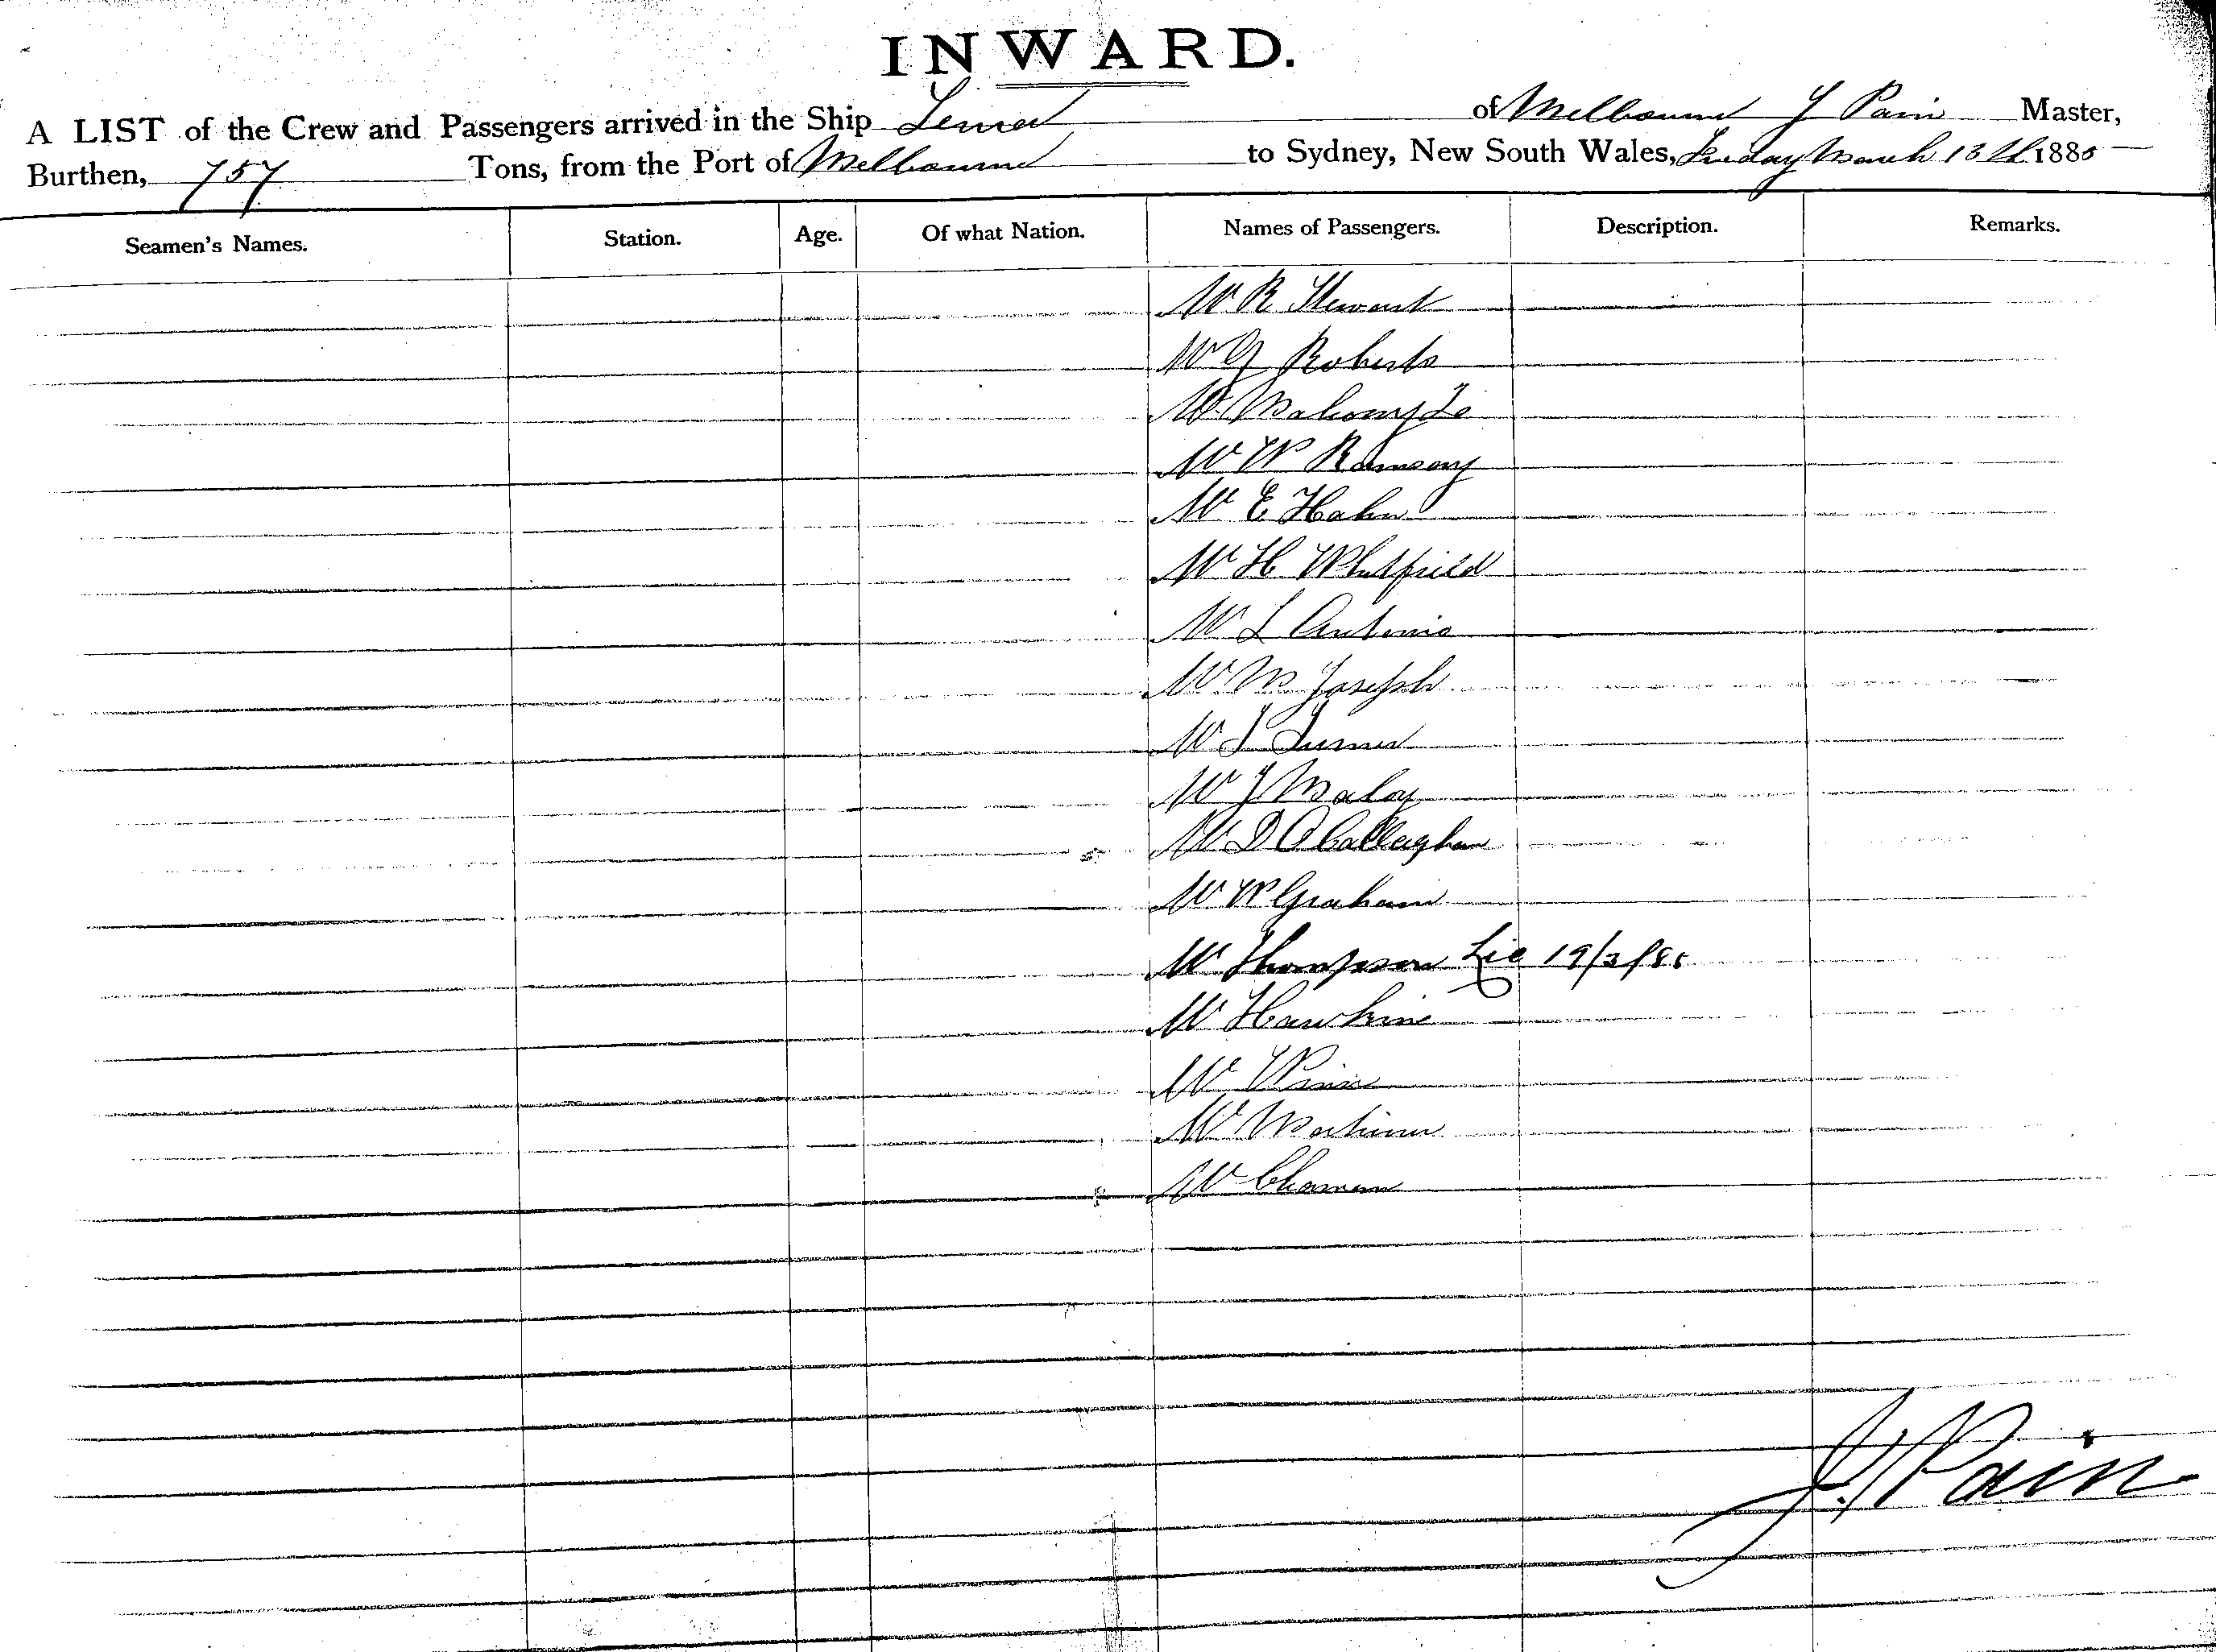 INWARD.
A LIST of the Crew and Passengers arrived in the Ship of Melbourne J Pain Master,
Burthen, 757 Tons, from the Port of Melbourne to Sydney, New South Wales, Friday March 13th 1885
Seamen's Names. Station. Age. Of what Nation. Names of Passengers. Description. Remarks.
Mr R Stewart
Mr G Roberts
Mr
Mr W Ramsay
Mr E Hahn
Mr H Whitfield
Mr L Antonio
Mr M Joseph
Mr J Turner
Mr J Maloy
Mr D O Callaghan
Mr W Graham
Mr Thompson 19/3/85
Mr Hawkins
Mr
Mr Mortimer
Mr
J. Pain